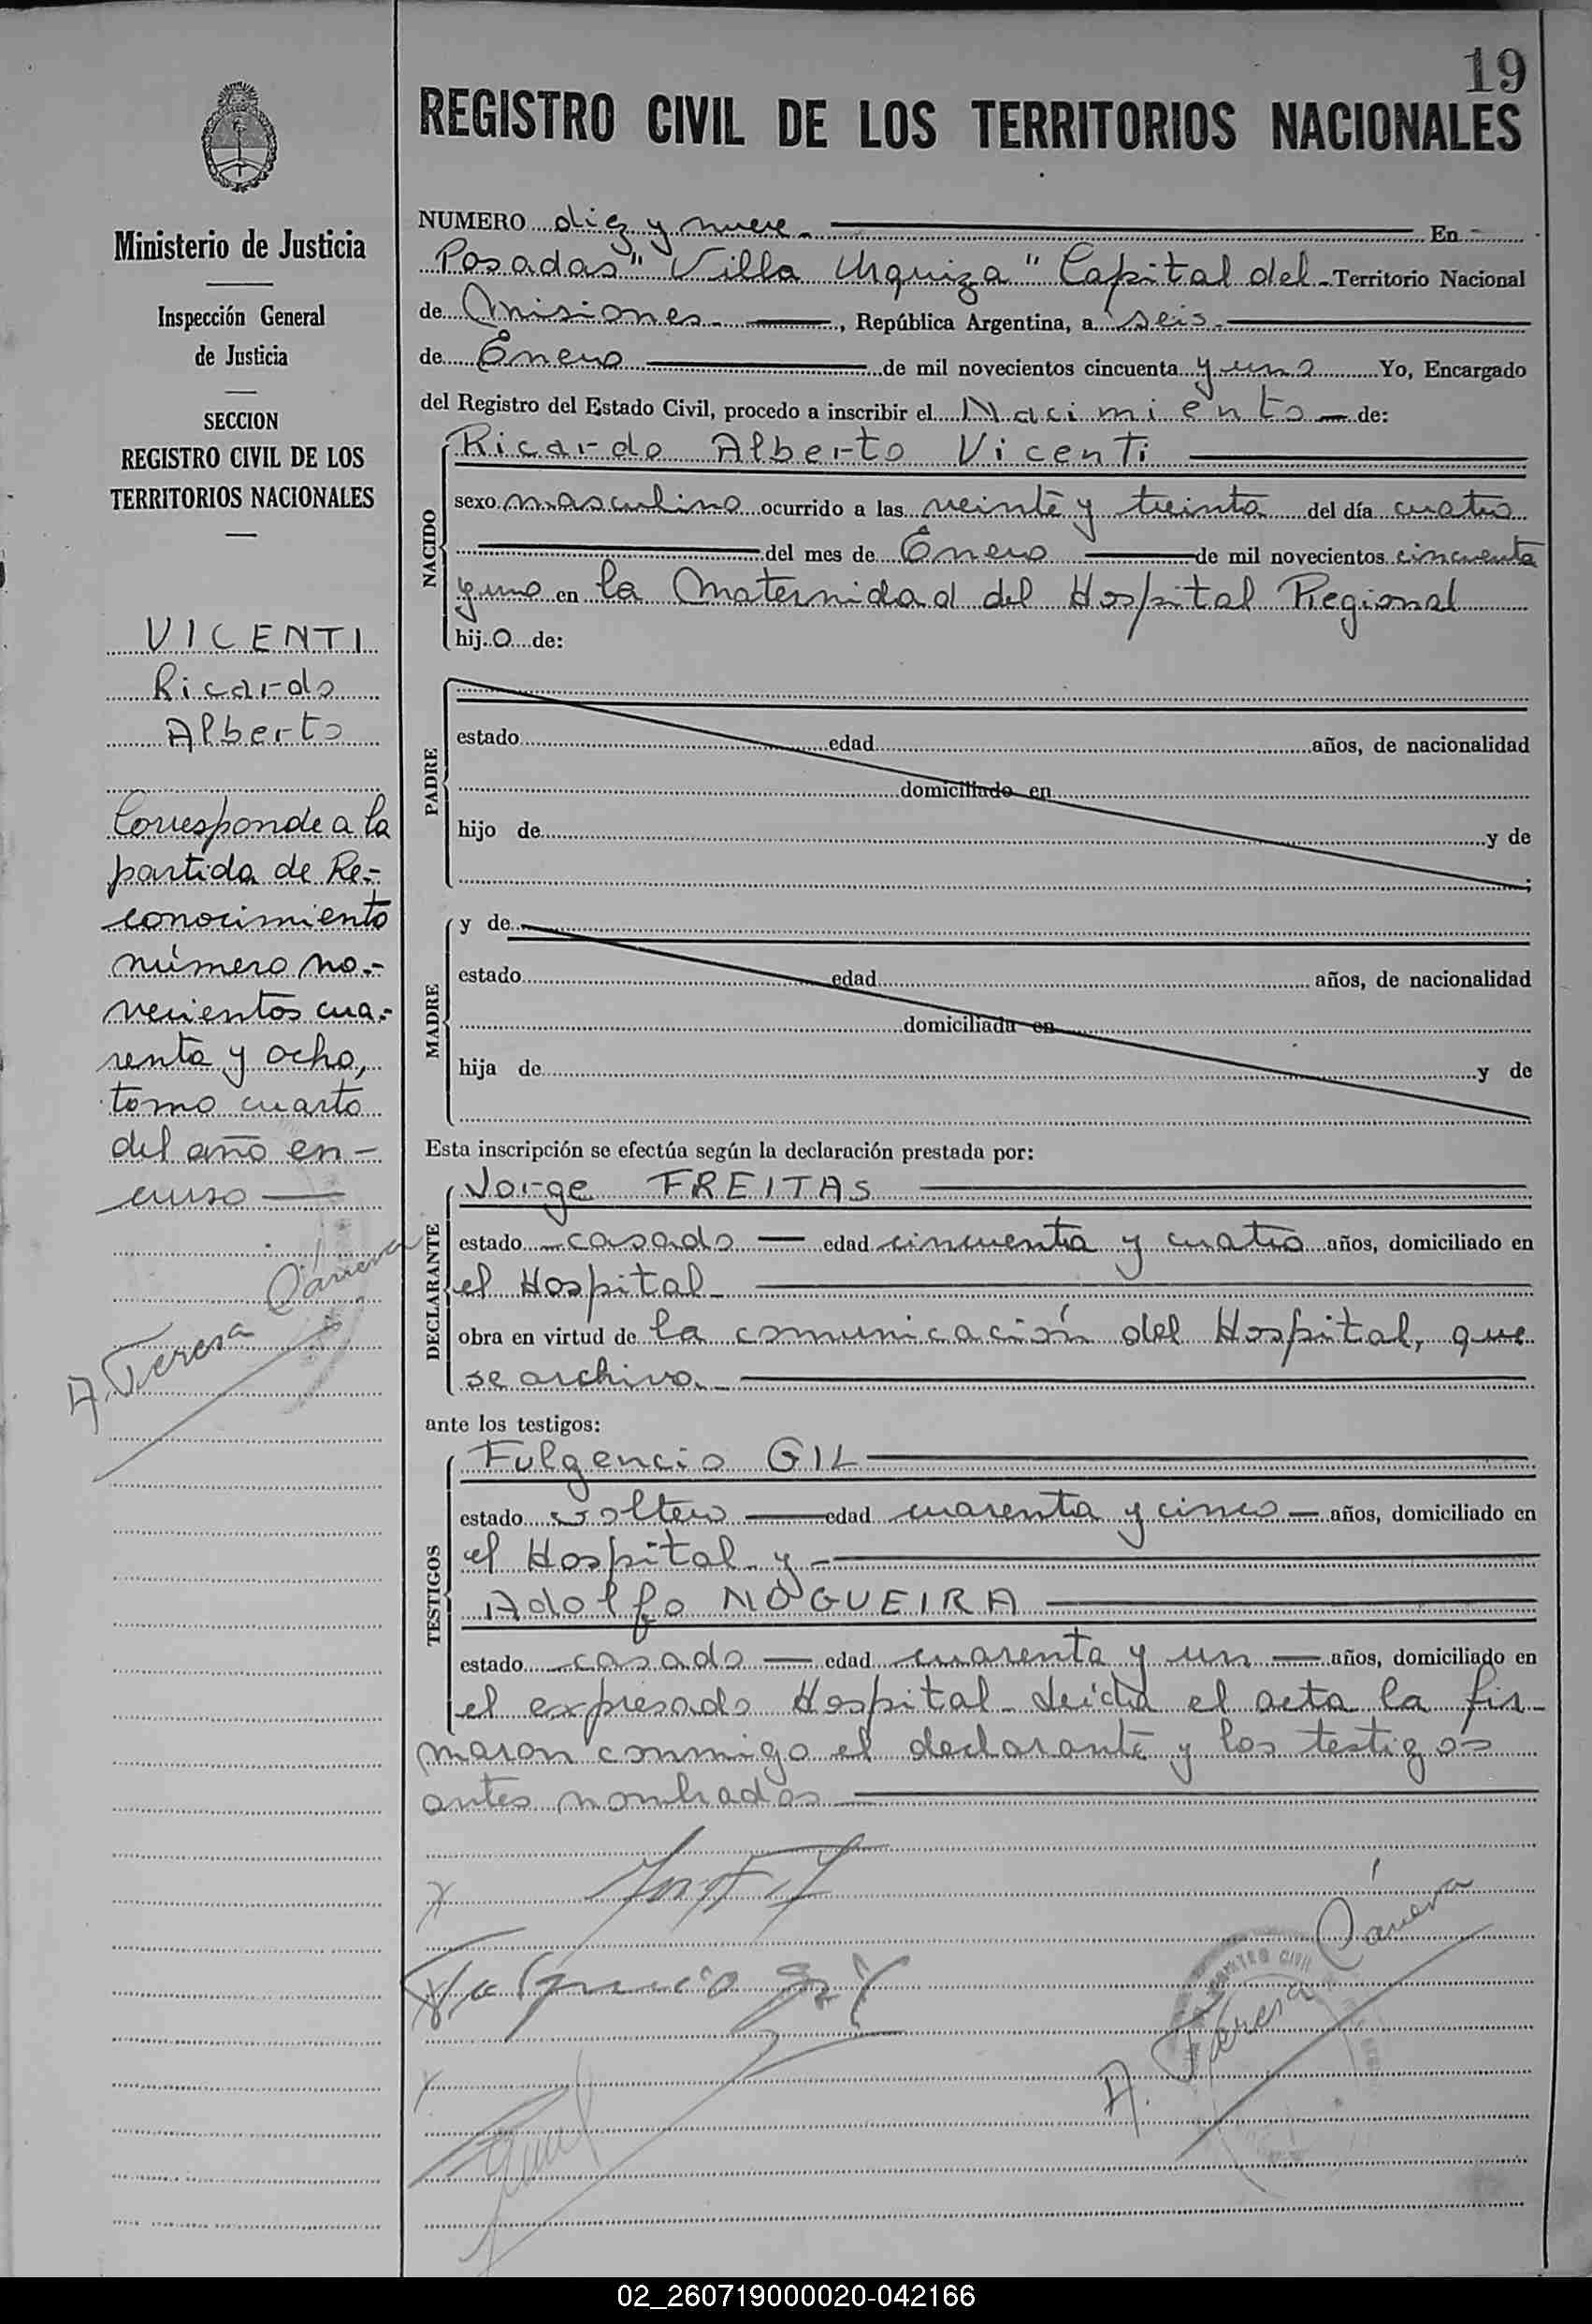 19
REGISTRO CIVIL DE LOS TERRITORIOS NACIONALES
Ministerio de Justicia
Inspección General
de Justicia
SECCION
REGISTRO CIVIL DE LOS
TERRITORIOS NACIONALES
VICENTI
Ricardo
Alberto
Corresponde a la
partida de Re-
conocimiento
número no-
vecientos cua-
renta y ocho,
tomo cuarto
del año en-
curso
A. Teresa Cánera
NUMERO diez y nueve. En
Posadas "Villa Urquiza" Capital del Territorio Nacional
de Misiones, República Argentina, a seis
de Enero de mil novecientos cincuenta y uno Yo, Encargado
del Registro del Estado Civil, procedo a inscribir el Nacimiento de:
NACIDO
Ricardo Alberto Vicenti
sexo masculino ocurrido a las veinte y treinta del día cuatro
del mes de Enero de mil novecientos cincuenta
y uno en la Maternidad del Hospital Regional
hijo de:
PADRE
estado edad años, de nacionalidad
domiciliado en
hijo de y de
;
MADRE
y de
estado edad años, de nacionalidad
domiciliada en
hija de y de
Esta inscripción se efectúa según la declaración prestada por:
DECLARANTE
Jorge FREITAS
estado casado edad cincuenta y cuatro años, domiciliado en
el Hospital
obra en virtud de la comunicación del Hospital, que
se archiva.
ante los testigos:
TESTIGOS
Fulgencio GIL
estado soltero edad cuarenta y cinco años, domiciliado en
el Hospital y
Adolfo NOGUEIRA
estado casado edad cuarenta y un años, domiciliado en
el expresado Hospital. Leída el acta la fir-
maron conmigo el declarante y los testigos
antes nombrados
Fulgencio Gil
REGISTRO CIVIL
A. Teresa Cánera
02_260719000020-042166